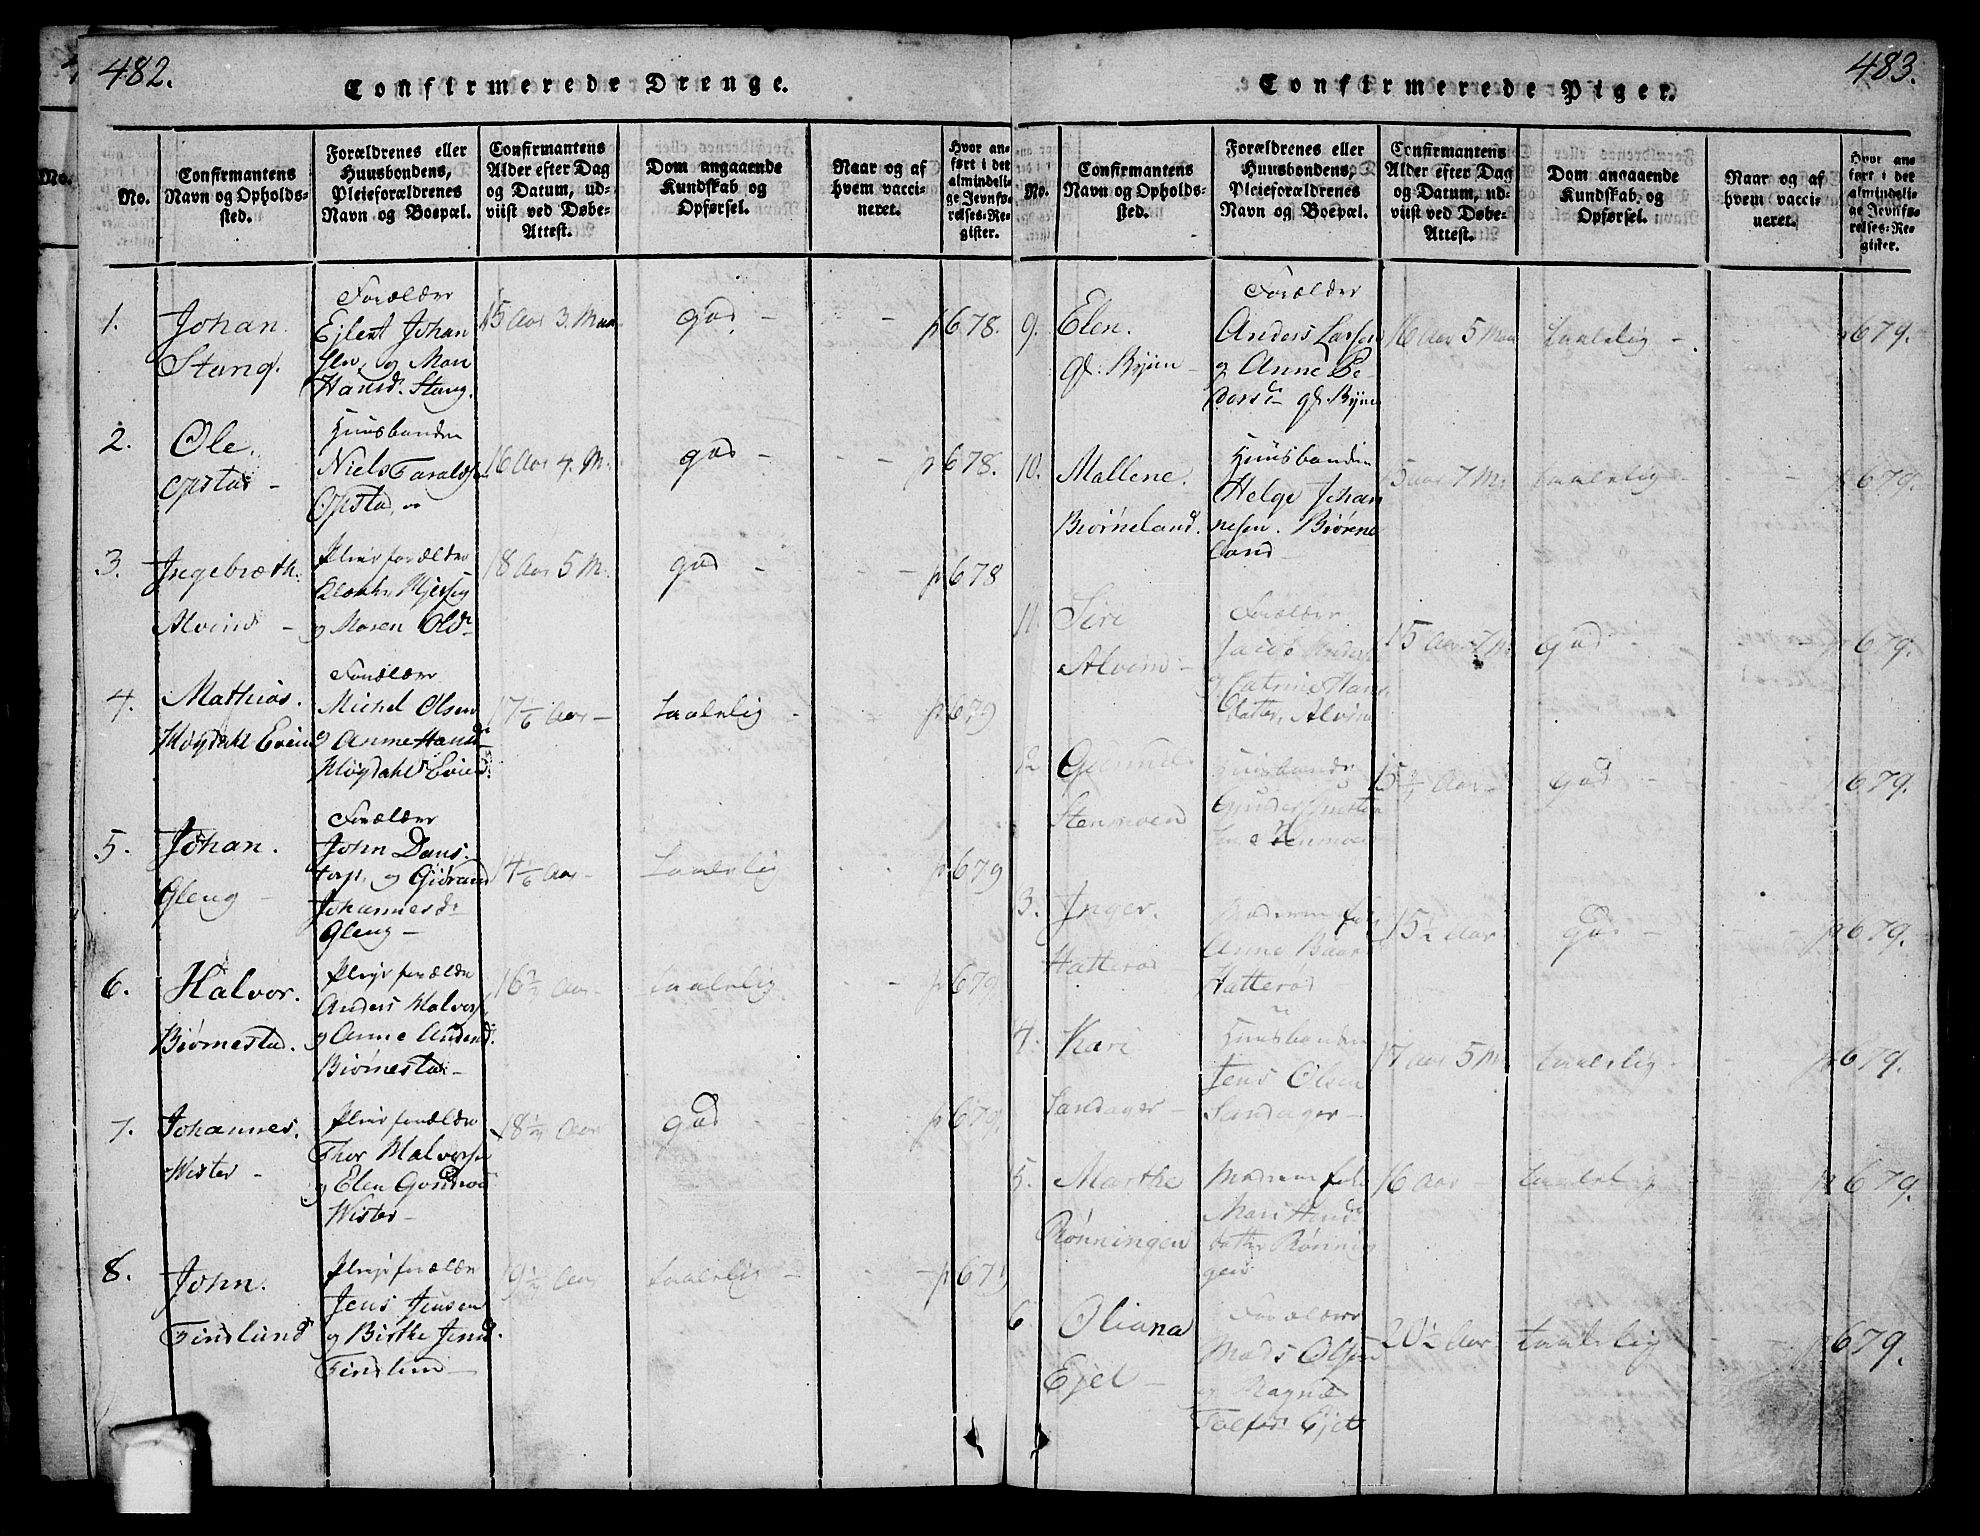 482.
Confirmerede Drenge.
No.
Confirmantens Navn og Opholds-sted.
Forældrenes eller Huusbondens, Pleieforældrenes Navn og Boepæl.
Confirmantens Alder efter Dag og Datum, ud-viist ved Døbe-Attest.
Dom angaaende Kundskab og Opførsel.
Naar og af hvem vacci-neret.
Hvor an-ført i det almindeli-ge Jevnfø-relses-Re-gister.
1.
Johan.
Stang.
Forældre
Ejlert Johan
sen, og Mari
Hansd. Stang.
15 Aar 3. Maa.
god - - - p 678.
2.
Ole.
Opstad -
Huusbonden
Niels Taralds
Opstad,
16 Aar 4. M.
god - - - p 678.
3.
Ingebræth.
Alvim -
Pleieforældre
og Maren Olsd
18 Aar 5 M.
god - - - p 678
4.
Mathias.
Forældre
Michel Olsen
og Anne Hansd
17 1/6 Aar -
taalelig - p 679
5.
Johan.
Gleng -
Forældre
John Dans
torp, og Giørand
Johannesd
Gleng -
14 1/6 Aar -
taalelig - - p 679
6.
Halvor.
Biørnestad.
Plejeforældre
Anders Halvors
og Anne Andersd.
Biørnestad -
Aar -
taalelig. - - p 679
7.
Johannes.
Wister -
Pleieforældre
Thor Halvorsen
og Elen
Wister -
Aar
god - - p 679.
8.
John.
Findlund
Plejeforældre
Jens Jensen
og Birthe Jensd.
Findlund -
19 1/2 Aar
taalelig - - - p 679
483.
Confirmerede Piger.
No.
Confirmantens Navn og Opholds-sted.
Forældrenes eller Huusbondens, Pleieforældrenes Navn og Boepæl.
Confirmantens Alder efter Dag og Datum, ud-viist ved Døbe-Attest.
Dom angaaende Kundskab og Opførsel.
Naar og af hvem vacci-neret.
Hvor an-ført i det almindeli-ge Jevnfø-relses-Re-gister.
9.
Elen.
Gl: Byen -
Forældre
Anders Larsen
og Anne Pe
dersd Gl Byen
16 Aar 5 Maa
taalelig - - p 679.
10.
Mallene.
Biørneland.
Huusbonden
Helge Johan
nesen. Biørne
land -
15 Aar 7 M.
taalelig - - p 679.
11.
Siri
Alvim -
Forældre
Jacob Anders
og Catrine Hans
datter, Alvim
15 Aar 7 M.
god - - p 679.
12
Stenmoen
Huusbonden
15 Aar -
god - - p 679.
3.
Inger.
Hatterød -
Moderen
Anne
Hatterød -
15 1/2 Aar
god - - p 679.
4.
Kari
Sandager -
Huusbonden
Jens Olsen
Sandager -
17 Aar 5 M.
taalelig - - p 679.
5.
Marthe
Rønningen
Moderen
Mari
datter Rønnin
gen
16 Aar -
taalelig - - p 679.
6
Oliana
Ejel -
Forældre
Mads Olsen
og Magnæ
20 1/2 Aar
taalelig - - p 679.